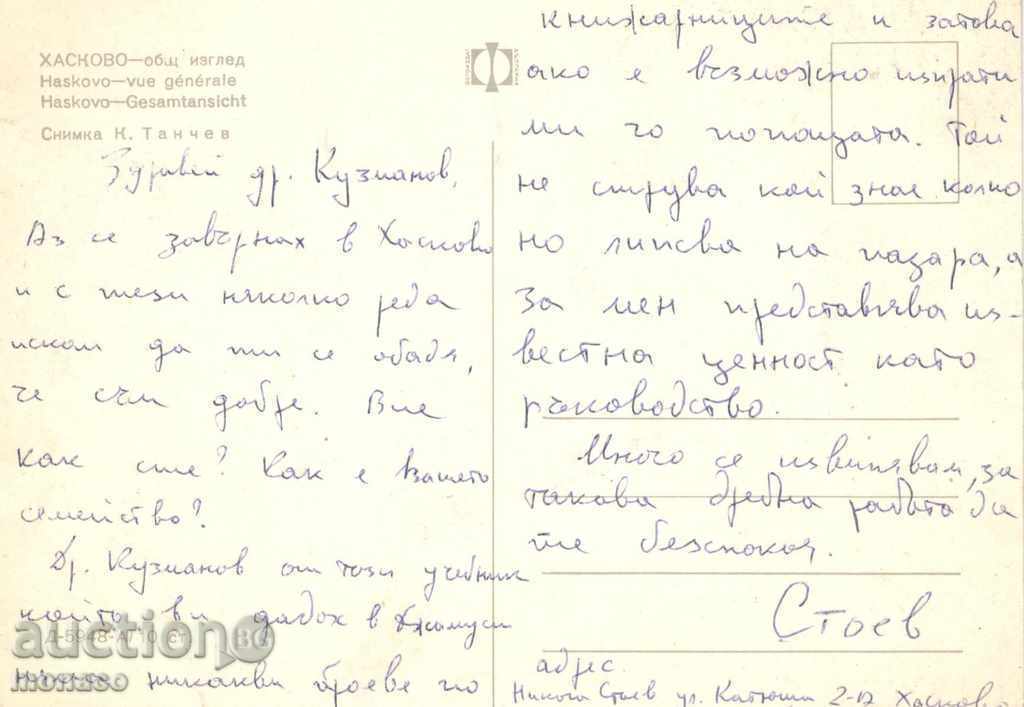 ХАСКОВО—общ изглед
Haskovo—vue générale
Haskovo—Gesamtansicht
Снимка К. Танчев
Здравей др. Кузманов,
Аз се завърнах в Хасково
и с тези няколко реда
искам да ти се обадя,
че съм добре. Вие
как сте? Как е вашето
семейство?
Др. Кузманов от този учебник
който ви дадох в
Д-5948-А
няма никакви броеве по
книжарниците и затова
ако е възможно изпрати
ми го по пощата. Той
не струва кой знае колко
но липсва на пазара, а
за мен представлява из-
вестна ценност като
ръководство.
Много се извинявам, за
такава дребна работа да
те безпокоя.
Стоев
адрес.
Никола Стоев ул. Катюша 2-12 Хасково
auction BG
monaco